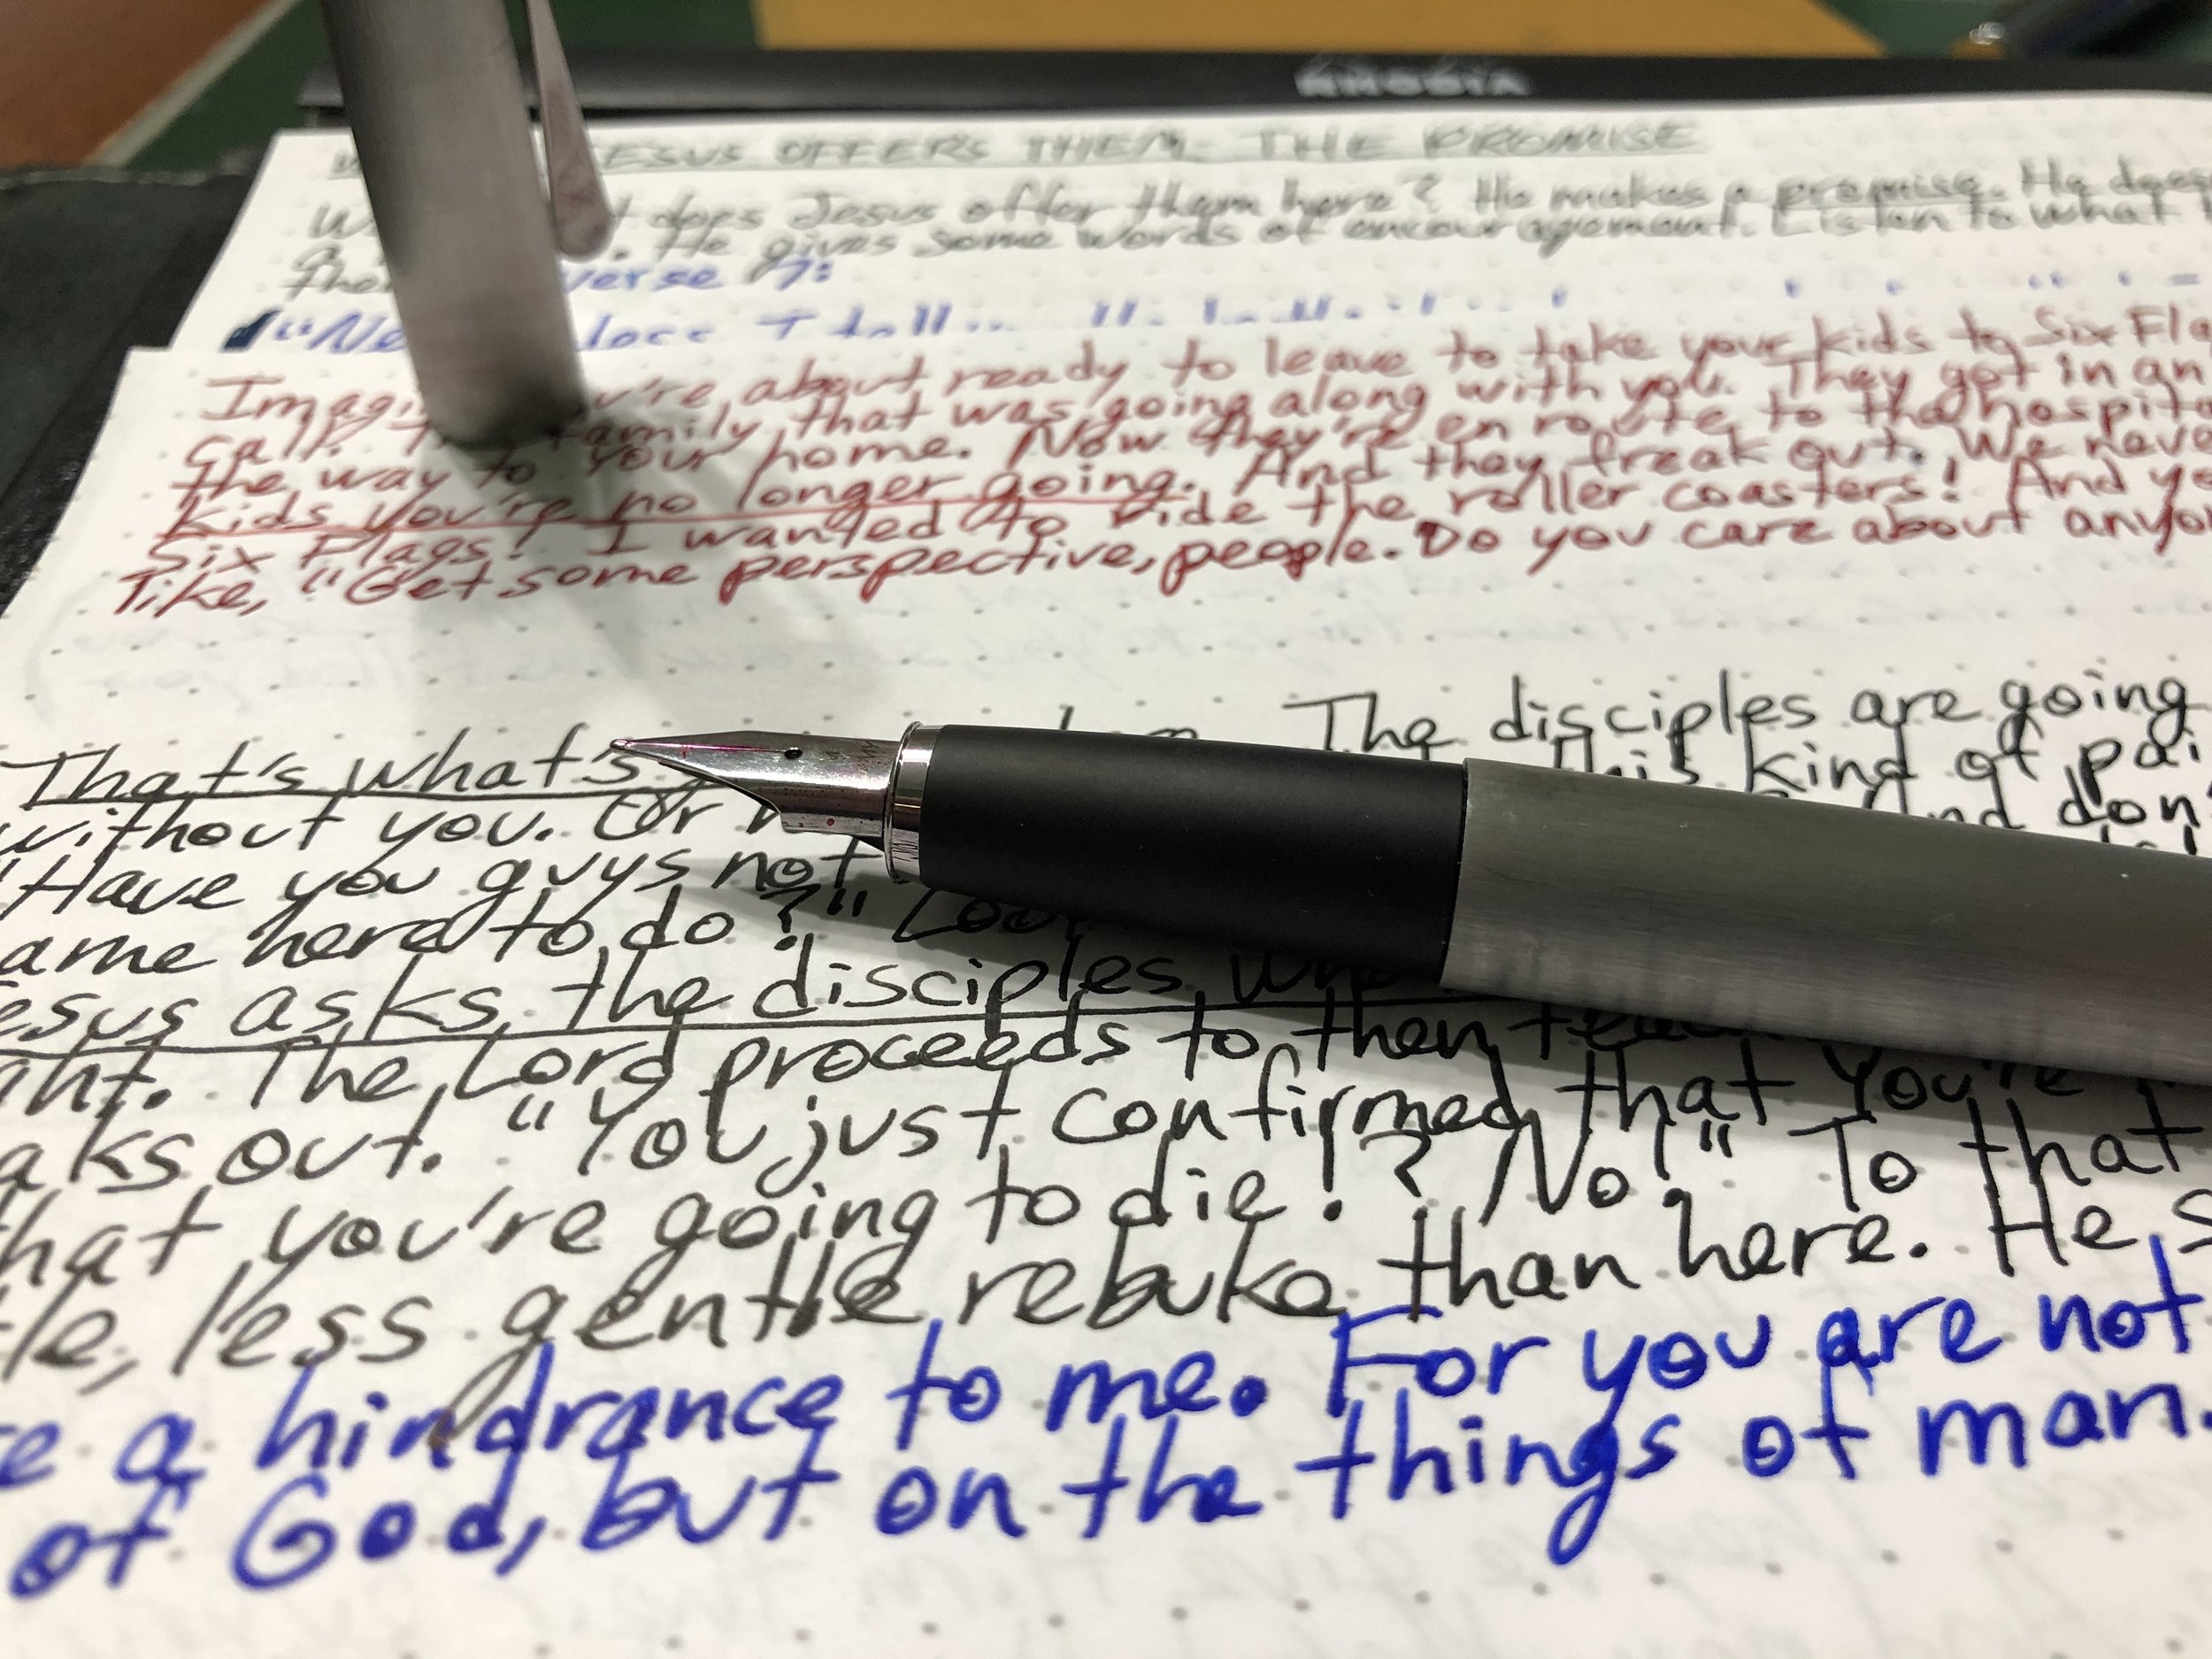 RHODIA
ESUS OFFERS THEM: THE PROMISE
does Jesus offer them here? He makes a promise. He does
a He gives some words of encouragement. Listen to what
the verse 17:
"Ne
Imagi 're about ready to leave to take your kids to Six Fla
call. family that was going along with you. They got in an
the way to your home. Now they're en route to the hospita
kids you're no longer going. And they freak out. We neve
Six Flags! I wanted to ride the roller coasters! And ye
like, "Get some perspective, people. Do you care about anyo
The disciples are going
That's what's this kind of pai
without you. Or nd don'
"Have you guys not
ame here to do?" Loo
esus asks the disciples wh
ght. The Lord proceeds to then
aks out. "You just confirmed that you're
hat you're going to die!? No!" To that
le, less gentle rebuke than here. He s
e a hindrance to me. For you are not
of God, but on the things of man.